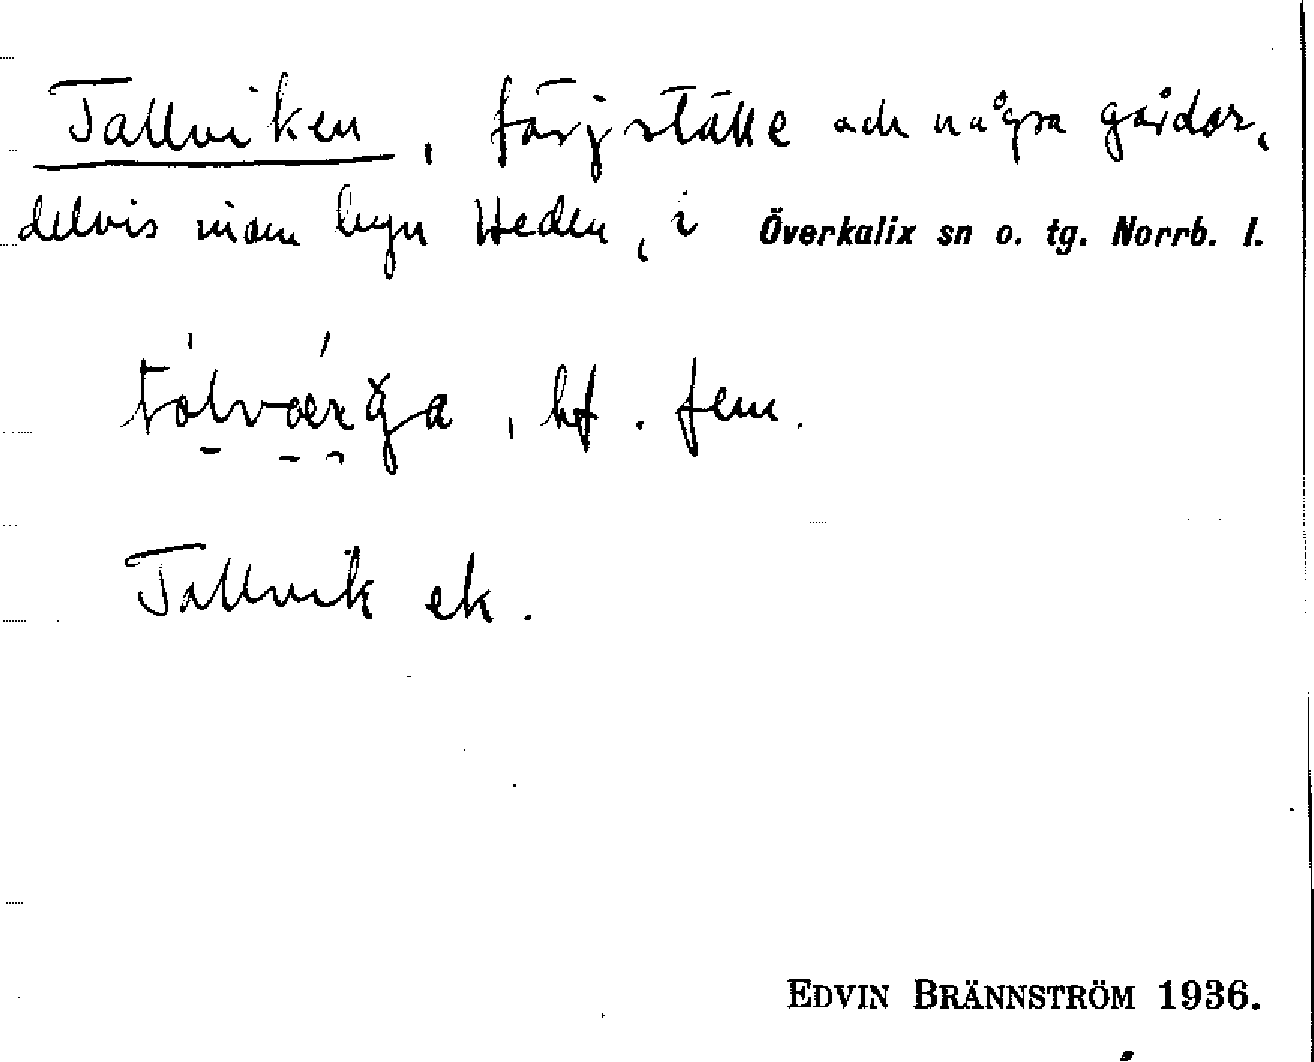 Tallviken, färjställe och några gårdar,
delvis inom byn Heden, i Överkalix sn o. tg. Norrb. l.
, bf. fem.
Tallvik ek.
EDVIN BRÄNNSTRÖM 1936.